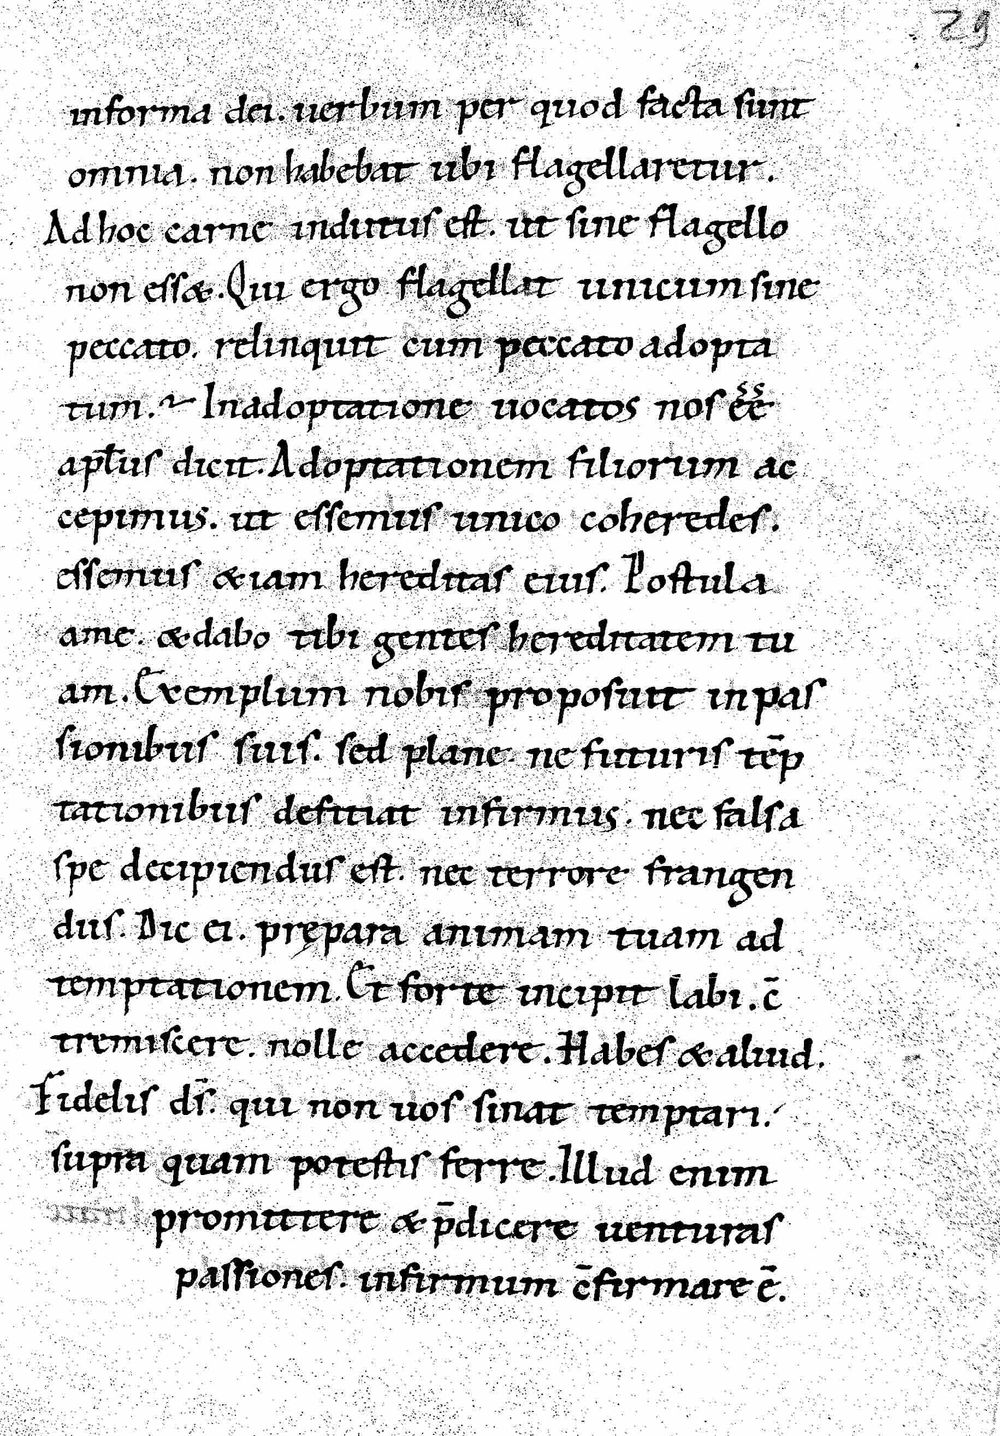 29
informa dei. uerbum per quod facta sunt
omnia. non habebat ubi flagellaretur.
Ad hoc carne indutus est. ut sine flagello
non essæ. Qui ergo flagellat unicum sine
peccato. relinquit cum peccato adopta
tum. In adoptatione uocatos nos ee᷎
apl̄us dicit. Adoptationem filiorum ac
cepimus. ut essemus unico coheredes.
essemus &iam hereditas eius. Postula
a me. & dabo tibi gentes hereditatem tu
am. Exemplum nobis proposuit in pas
sionibus suis. sed plane ne futuris tēp
tationibus defitiat infirmus. nec falsa
spe decipiendus est. nec terrore frangen
dus. Dic ei. prępara animam tuam ad
temptationem. Et forte incipit labi. c̄
tremiscere. nolle accedere. Habes & aliud.
Fidelis ds̄. qui non uos sinat temptari
supra quam potestis ferre. Illud enim
promittere & p̄dicere uenturas
passiones. infirmum c̄firmare ē.